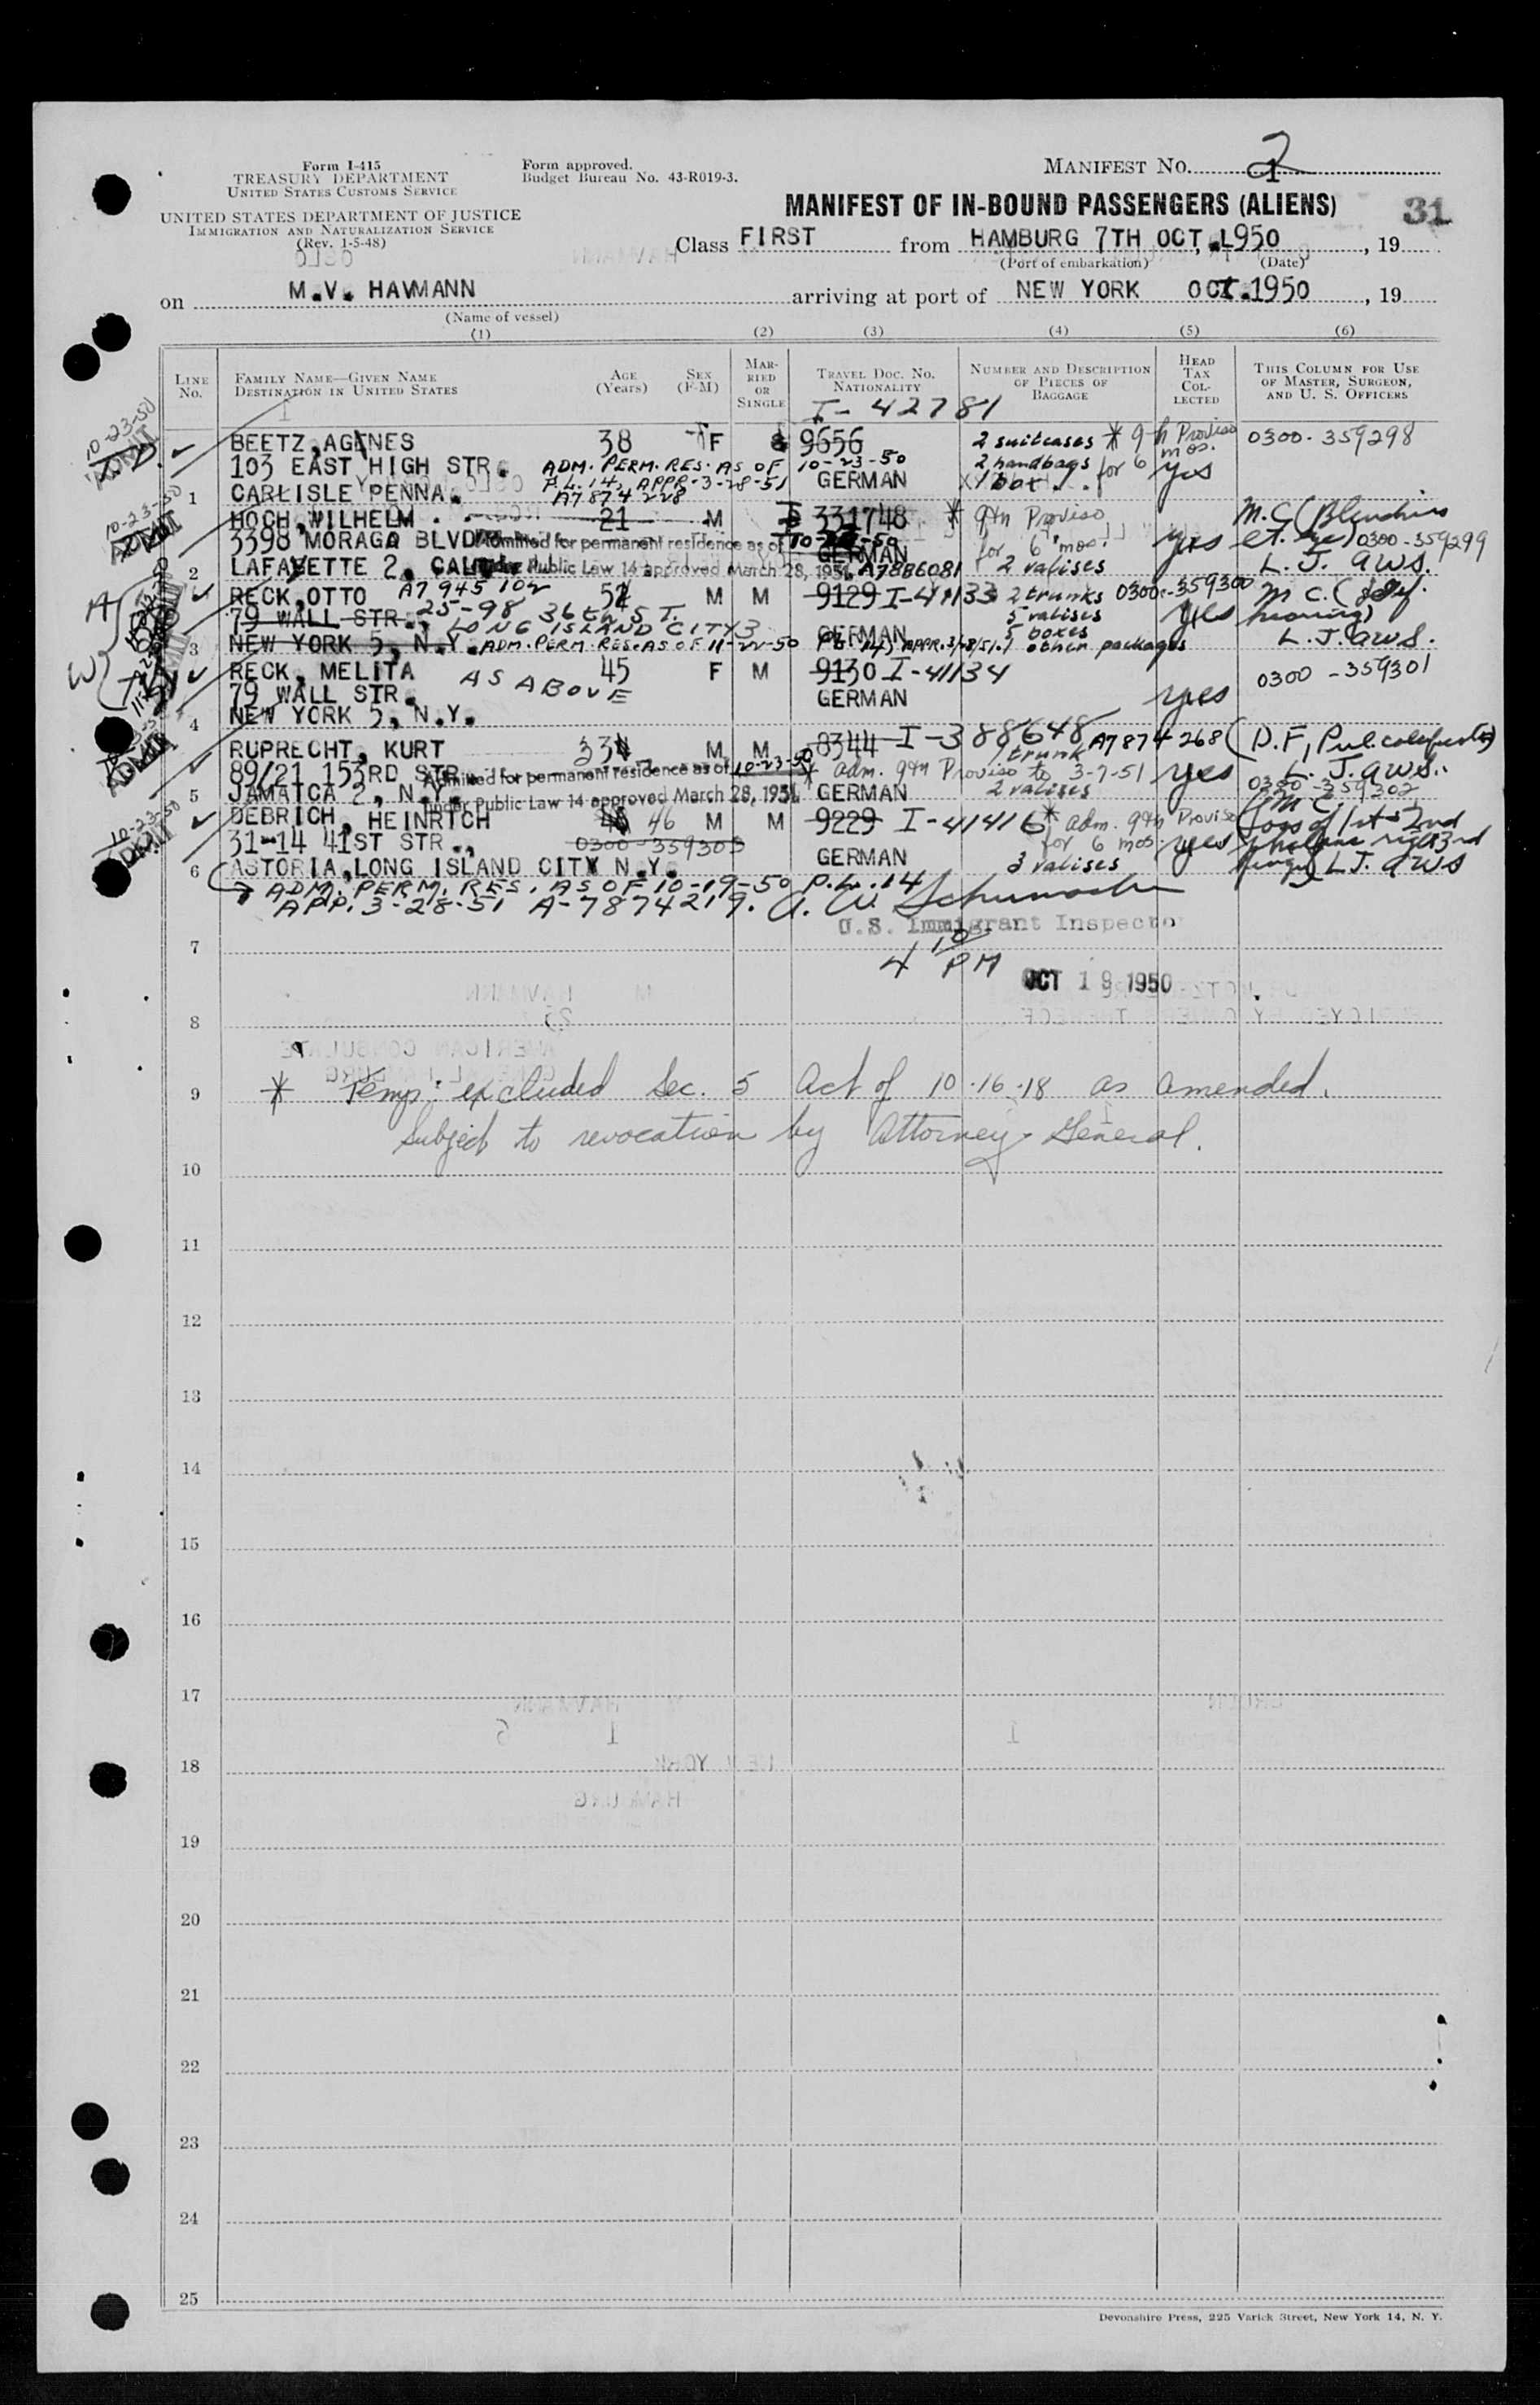 Form I-415
TREASURY DEPARTMENT
UNITED STATES CUSTOMS SERVICE
UNITED STATES DEPARTMENT OF JUSTICE
IMMIGRATION AND NATURALIZATION SERVICE
(Rev. 1-5-48)
Form approved.
Budget Bureau No. 43-R019-3.
MANIFEST NO. 2
MANIFEST OF IN-BOUND PASSENGERS (ALIENS) 31
Class FIRST from HAMBURG 7TH OCT. 1950, 19
(Port of embarkation) (Date)
on M.V. HAVMANN arriving at port of NEW YORK OCT. 1950, 19
(Name of vessel)
(1) (2) (3) (4) (5) (6)
LINE NO.
FAMILY NAME—GIVEN NAME
DESTINATION IN UNITED STATES
AGE (YEARS)
SEX (F-M)
MARRIED OR SINGLE
TRAVEL DOC. NO. NATIONALITY
NUMBER AND DESCRIPTION OF PIECES OF BAGGAGE
HEAD TAX COLLECTED
THIS COLUMN FOR USE OF MASTER, SURGEON, AND U. S. OFFICERS
I-42781
10-23-50
BEETZ, AGNES 38 F 9656 2 suitcases * 9th Proviso 0300-359298
103 EAST HIGH STR. ADM. PERM. RES. AS OF 10-23-50 2 handbags for 6 mos. yes
1 CARLISLE PENNA. P.L. 14, APPR-3-28-51 GERMAN 1 box
A7874228
10-23-50
HOCH, WILHELM 21 M 331748 * 9th Proviso M.C.
3398 MORAGA BLVD Admitted for permanent residence as of 10-23-50 for 6 mos. yes 0300-359299
2 LAFAYETTE 2, CALIF. Under Public Law 14 approved March 28, 1951. GERMAN A7886081 2 valises L. J. aws.
RECK, OTTO A7 945 102 52 M M 9129 I-41133 2 trunks 0300-359300 M C. (def.
79 WALL STR. 25-98 36th ST. 5 valises yes hearing)
LONG ISLAND CITY 3 GERMAN 5 boxes
3 NEW YORK 5, N.Y. ADM. PERM. RES. AS OF 11-22-50 PL 14) APPR. 3/28/51. 1 other packages L. J. aws.
RECK, MELITA AS ABOVE 45 F M 9130 I-41134 0300-359301
79 WALL STR. GERMAN yes
4 NEW YORK 5, N.Y.
RUPRECHT, KURT 33 M M 8344 I-388648 1 trunk A7874268 (D.F.,
89/21 153RD STR. Admitted for permanent residence as of 10-23-50 * adm. 9th Proviso to 3-7-51 yes L. J. aws.
5 JAMAICA 2, N.Y. Under Public Law 14 approved March 28, 1951. GERMAN 2 valises 0300-359302
10-23-50
OEBRICH, HEINRICH 46 M M 9229 I-41416 * adm. 9th Proviso (M C. loss of 1st & 2nd
31-14 41ST STR., 0300-359303 for 6 mos. yes phalanx right 3rd
6 ASTORIA, LONG ISLAND CITY N.Y. GERMAN 3 valises finger) L J. aws
ADM. PERM. RES. AS OF 10-19-50 P.L. 14
APP. 3-28-51 A-7874219.
U.S. Immigrant Inspector
7
4 10 PM
OCT 19 1950
8
9 * Temp. excluded Sec. 5 Act of 10-16-18 as amended.
Subject to revocation by Attorney General.
10
11
12
13
14
15
16
17
18
19
20
21
22
23
24
25
Devonshire Press, 225 Varick Street, New York 14, N. Y.